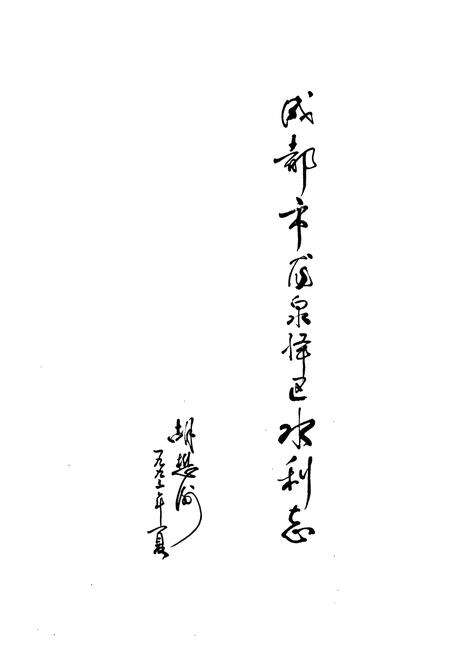 成都市龙泉驿区水利志
胡懋洲
一九九二年夏